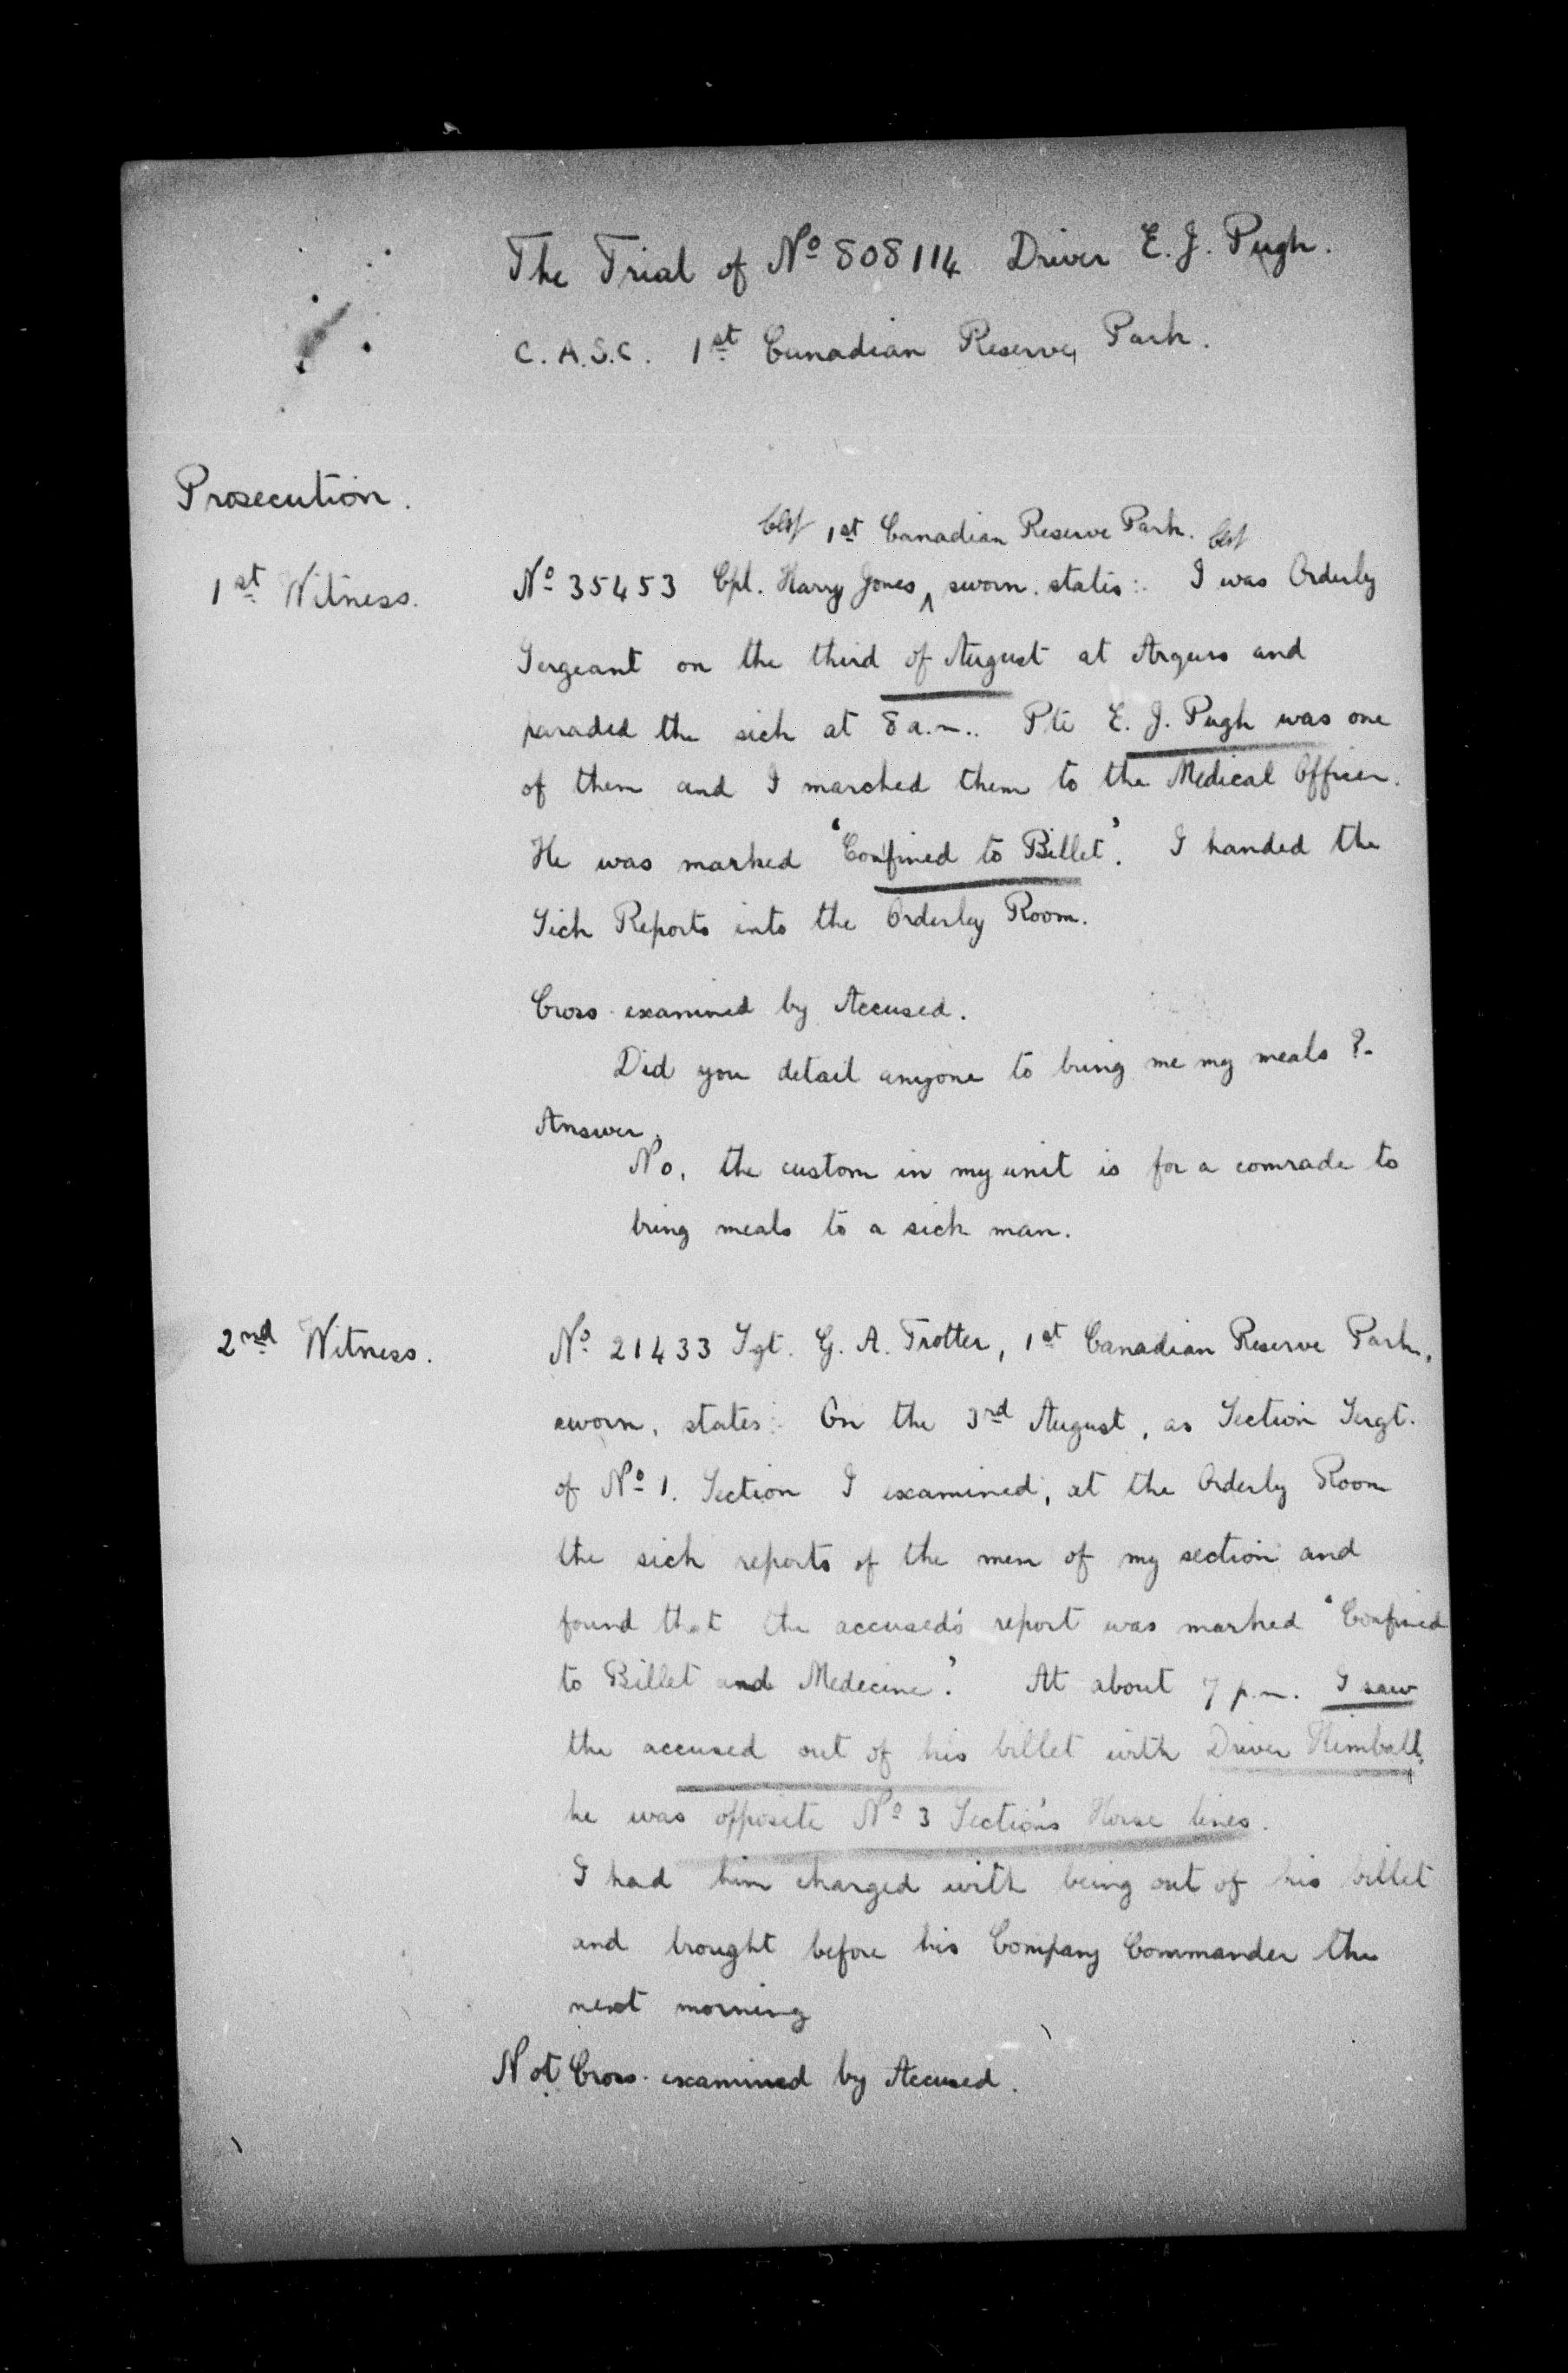 The Trial of Nº 808114 Driver E. J. Pugh.
C.A.S.C. 1st Canadian Reserve Park.
Prosecution.
1st Canadian Reserve Park.
1st Witness. Nº 35453 Cpl. Harry Jones ^ sworn. states:- I was Orderly
Sergeant on the third of August at and
paraded the sick at 8 a.m.. Pte E. J. Pugh was one
of them and I marched them to the Medical Officer.
He was marked 'Confined to Billet'. I handed the
Sick Reports into the Orderly Room.
Cross-examined by Accused.
Did you detail anyone to bring me my meals?-
Answer.
No, the custom in my unit is for a comrade to
bring meals to a sick man.
2nd Witness. Nº 21433 Sgt. G. A. Trotter, 1st Canadian Reserve Park,
sworn, states:- On the 3rd August, as Section Sergt.
of Nº 1. Section I examined, at the Orderly Room
the sick reports of the men of my section and
found that the accused's report was marked 'Confined
to Billet and Medecine'. At about 7 p.m. I saw
the accused out of his billet with Driver
he was opposite Nº 3 Section's Horse lines.
I had him charged with being out of his billet
and brought before his Company Commander the
next morning
Not Cross-examined by Accused.